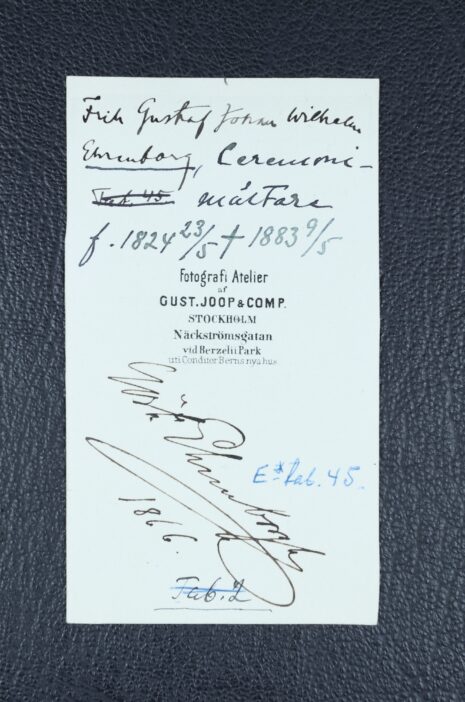 Frih Gustaf Johan Wilhelm
Ehrenborg, Ceremoni-
Tab. 45. mästare
f. 1824 23/5 † 1883 9/5
Fotografi Atelier
af
GUST. JOOP & COMP.
STOCKHOLM
Näckströmsgatan
vid Berzelii Park
uti Conditor Berns nya hus
Gösta Ehrenborg
E* Tab. 45.
1866.
Tab. 2